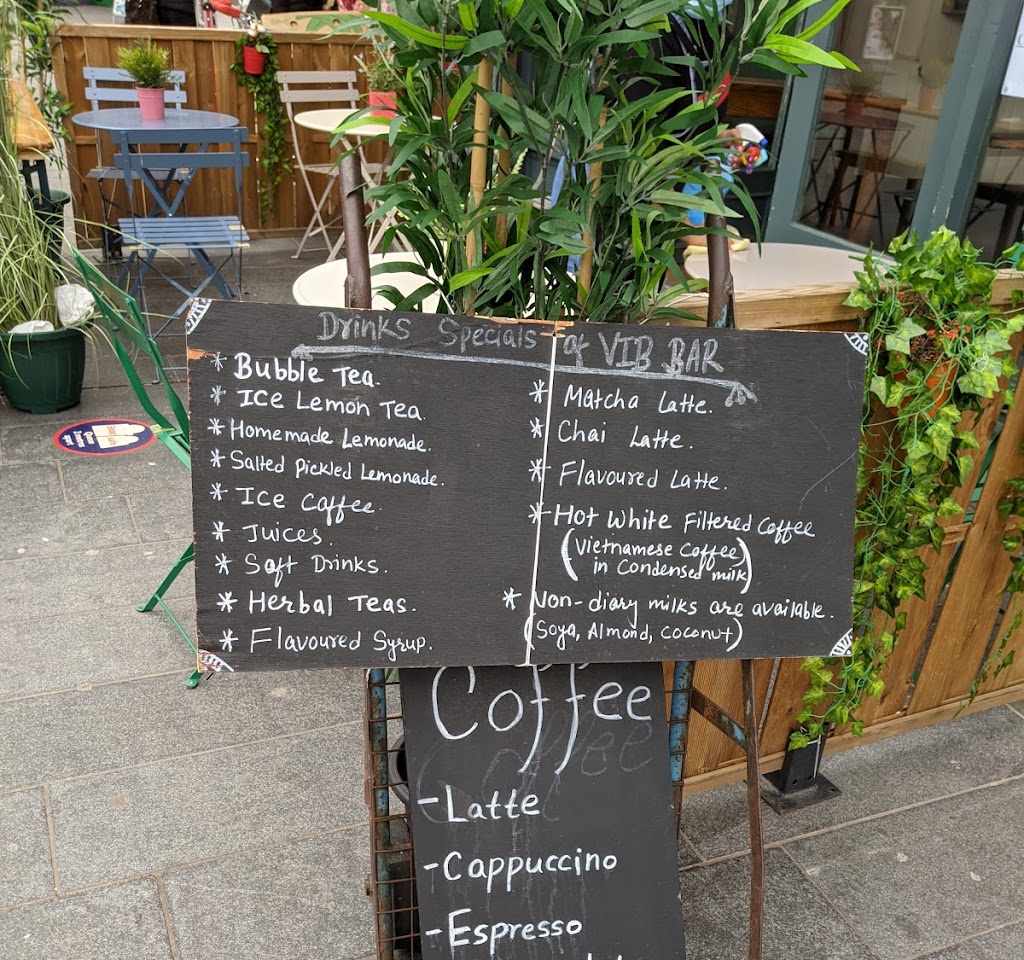 Drinks Specials of VIB BAR
* Bubble Tea.
* Ice Lemon Tea.
* Homemade Lemonade.
* Salted Pickled Lemonade.
* Ice Coffee.
* Juices.
* Soft Drinks.
* Herbal Teas.
* Flavoured Syrup.
* Matcha Latte.
* Chai Latte.
* Flavoured Latte.
* Hot White Filtered Coffee
(Vietnamese Coffee
in Condensed milk)
* Non-diary milks are available.
(Soya, Almond, Coconut)
Coffee
- Latte
- Cappuccino
- Espresso